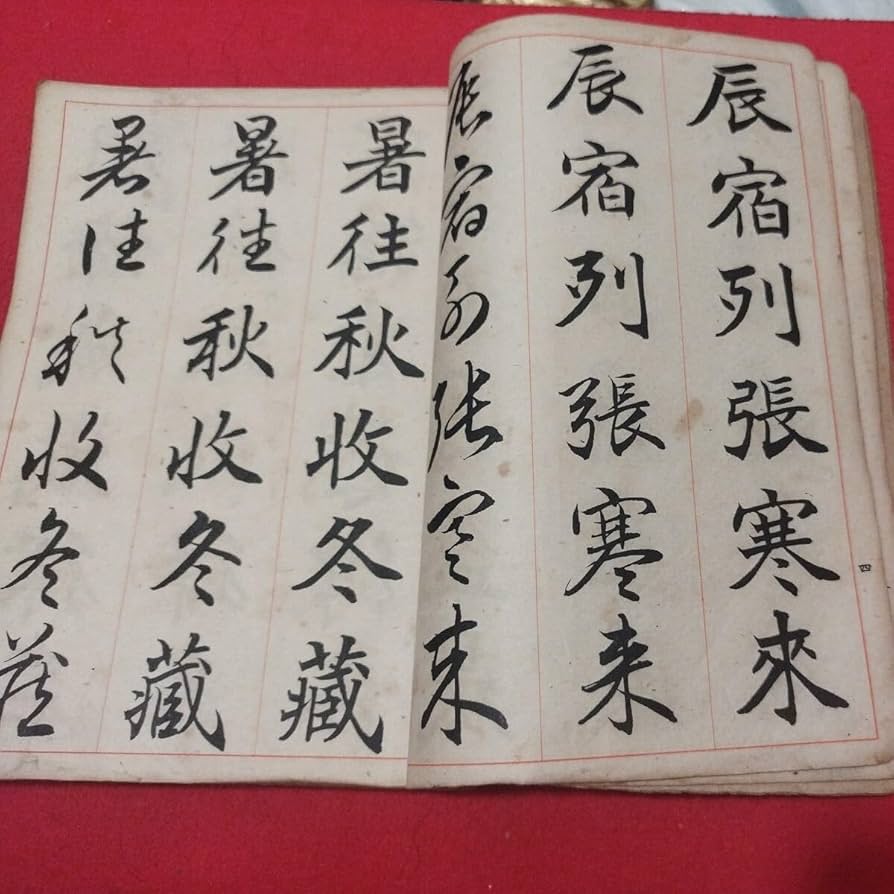 辰宿列張寒來
辰宿列張寒来
辰宿列张寒来
四
暑往秋收冬藏
暑往秋收冬藏
暑往秋收冬藏